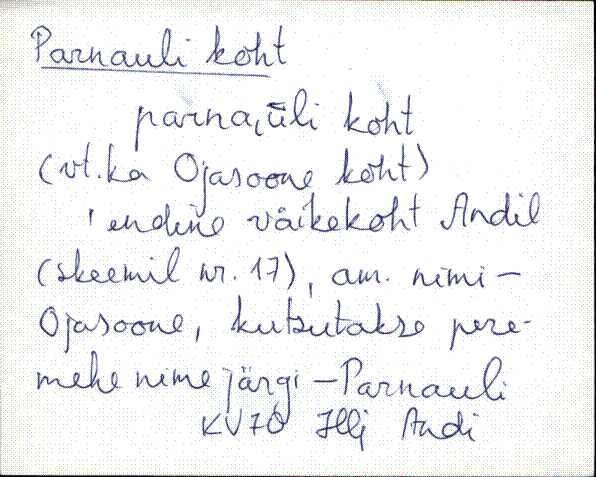 Parnauli koht
parna,üli koht
(vt. ka Ojasoone koht)
'endine väikekoht Andil
(skeemil nr. 17), am. nimi –
Ojasoone, kutsutakse pere-
mehe nime järgi – Parnauli
KV70 Hlj Andi